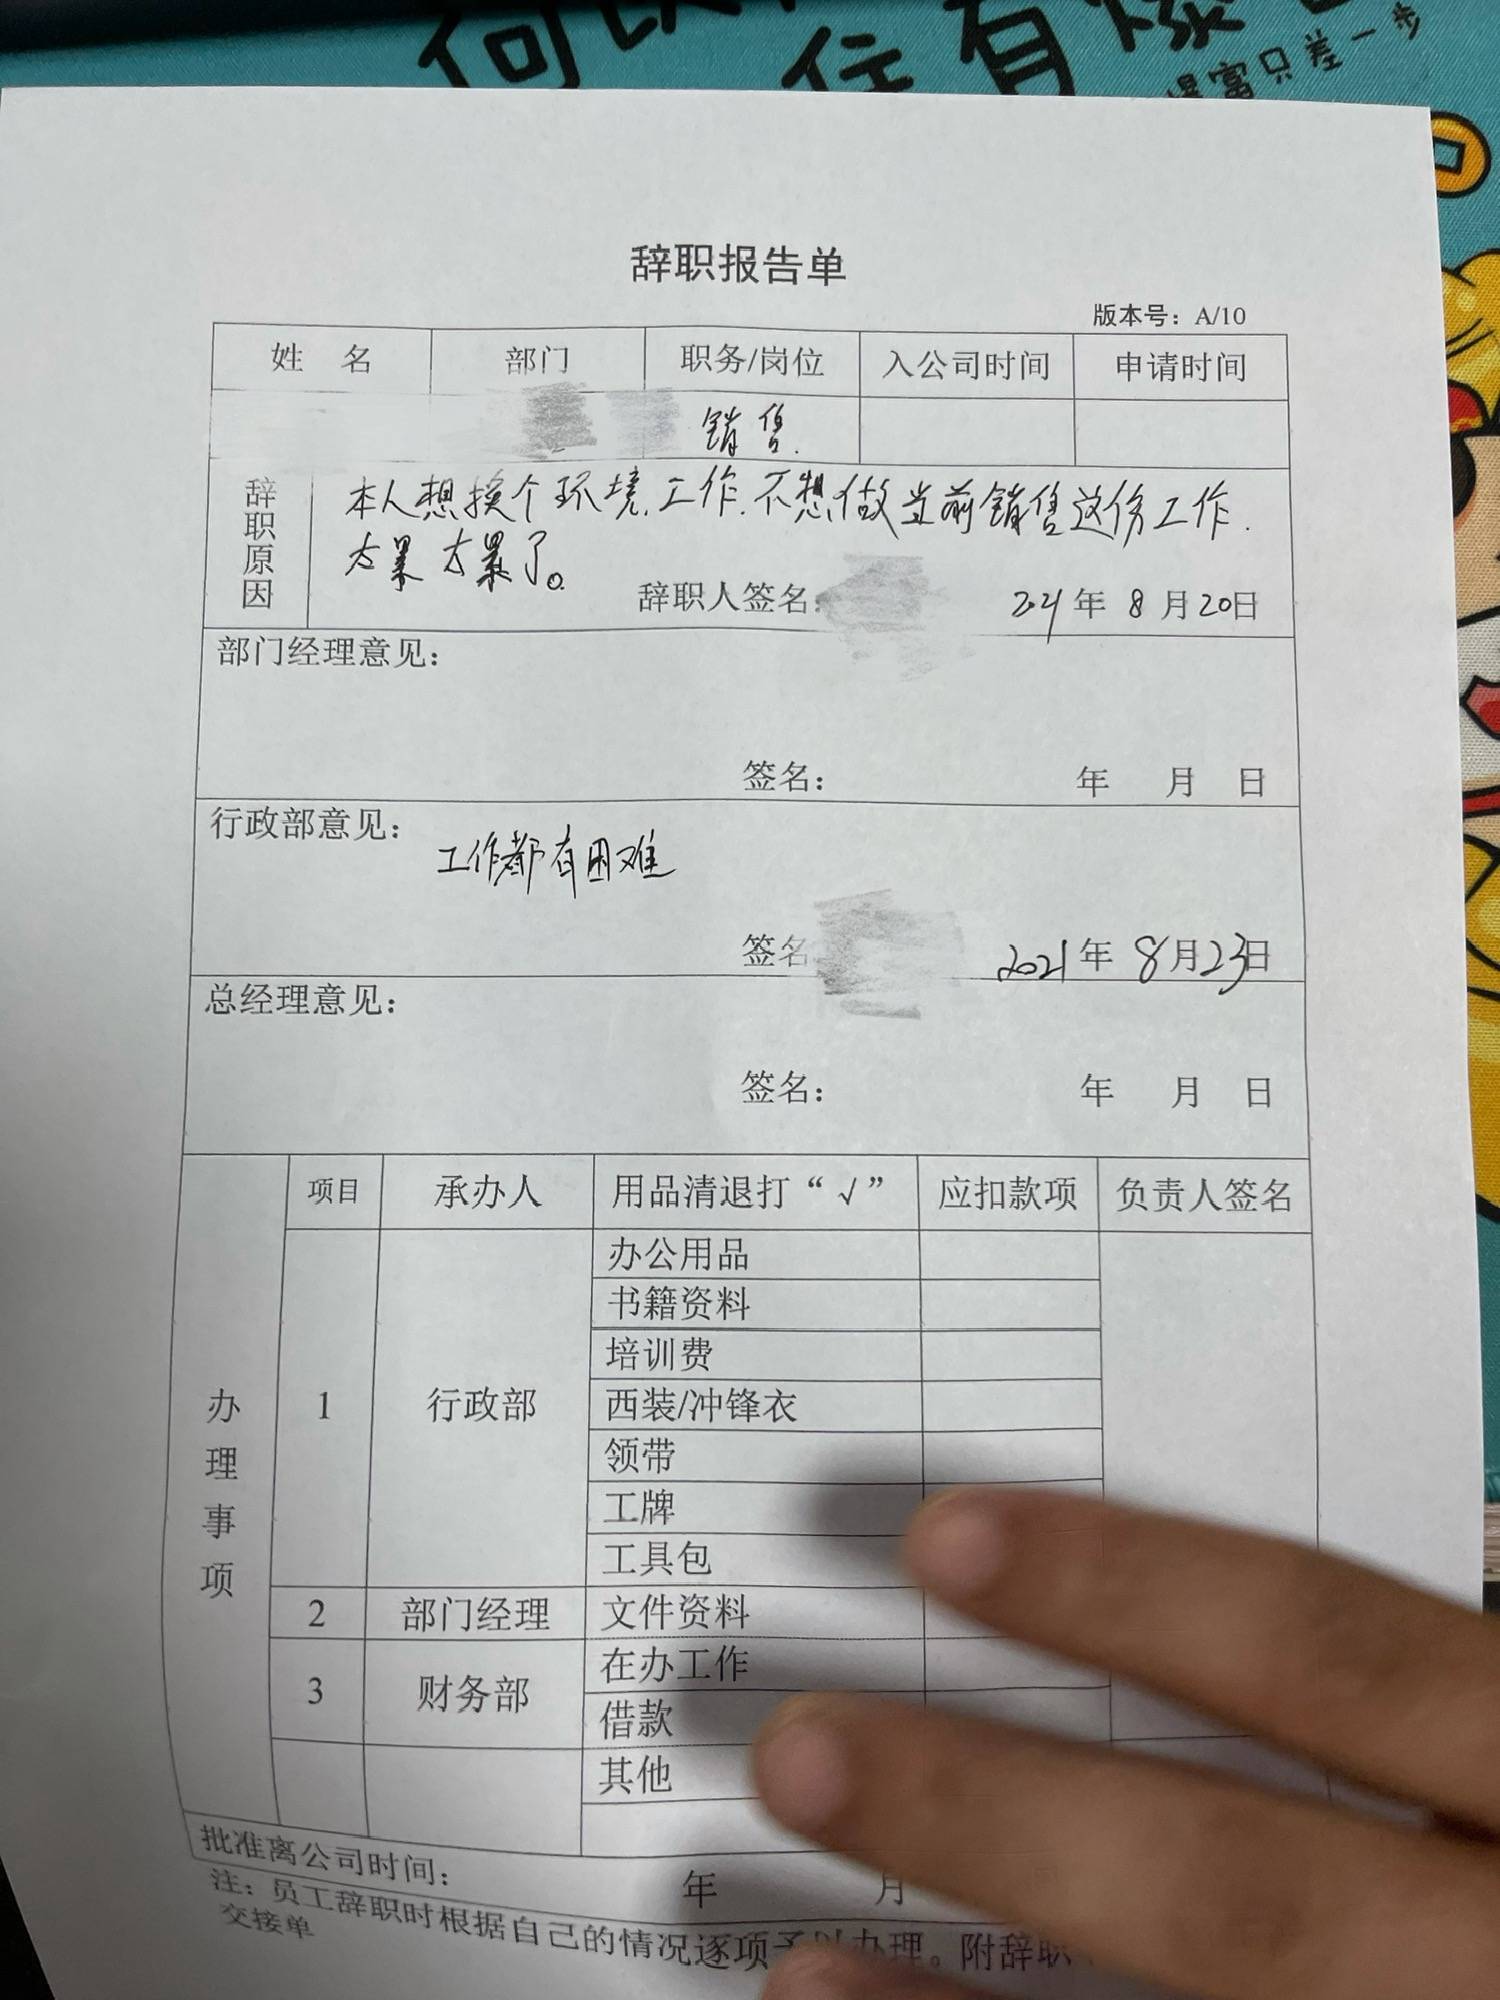 有
得富只差一步
辞职报告单
版本号：A/10
姓 名 部门 职务/岗位 入公司时间 申请时间
销售.
辞职原因
本人想换个环境.工作.不想做当前销售这份工作.
太累太累了。
辞职人签名： 2021年 8月20日
部门经理意见：
签名： 年 月 日
行政部意见：
工作都有困难
签名 2021年 8月23日
总经理意见：
签名： 年 月 日
办理事项
项目 承办人 用品清退打“√” 应扣款项 负责人签名
1 行政部 办公用品
书籍资料
培训费
西装/冲锋衣
领带
工牌
工具包
2 部门经理 文件资料
3 财务部 在办工作
借款
其他
批准离公司时间： 年 月
注：员工辞职时根据自己的情况逐项予以办理。附辞职
交接单